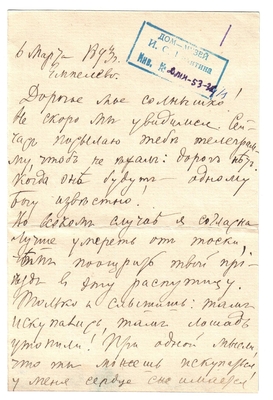 ДОМ-МУЗЕЙ
И. С.
Инв. №
6 Марта
Дорогое мое солнышко!
Не скоро мы увидимся. Сей-
час посылаю тебе телеграм-
му, чтоб не ехал: дорог нет.
Когда онѣ будут одному
Богу известно!
Во всяком случае я согласна
лучше умереть от тоски,
чѣм поощрять твой прі-
ѣзд в эту распутицу.
Только и слышишь: там
искупались, там лошадь
утопили! При одной мысли,
что ты можешь искупаться,
у меня сердце сжимается!